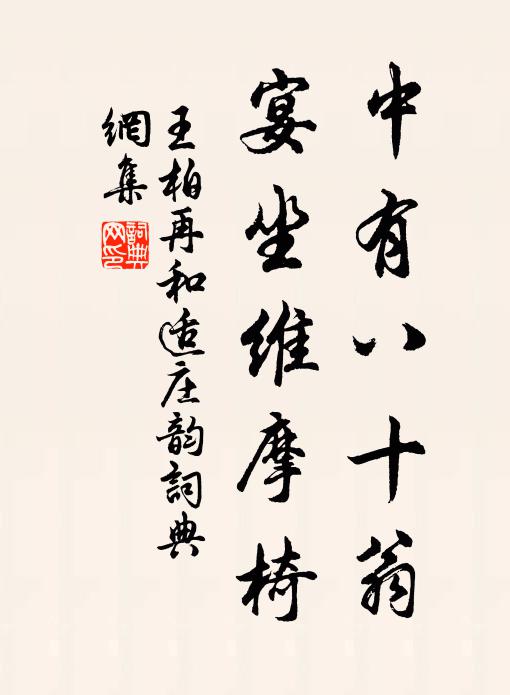 中有八十翁
宴坐維摩椅
王柏再和适庄韵詞典
網集
詞典
网印